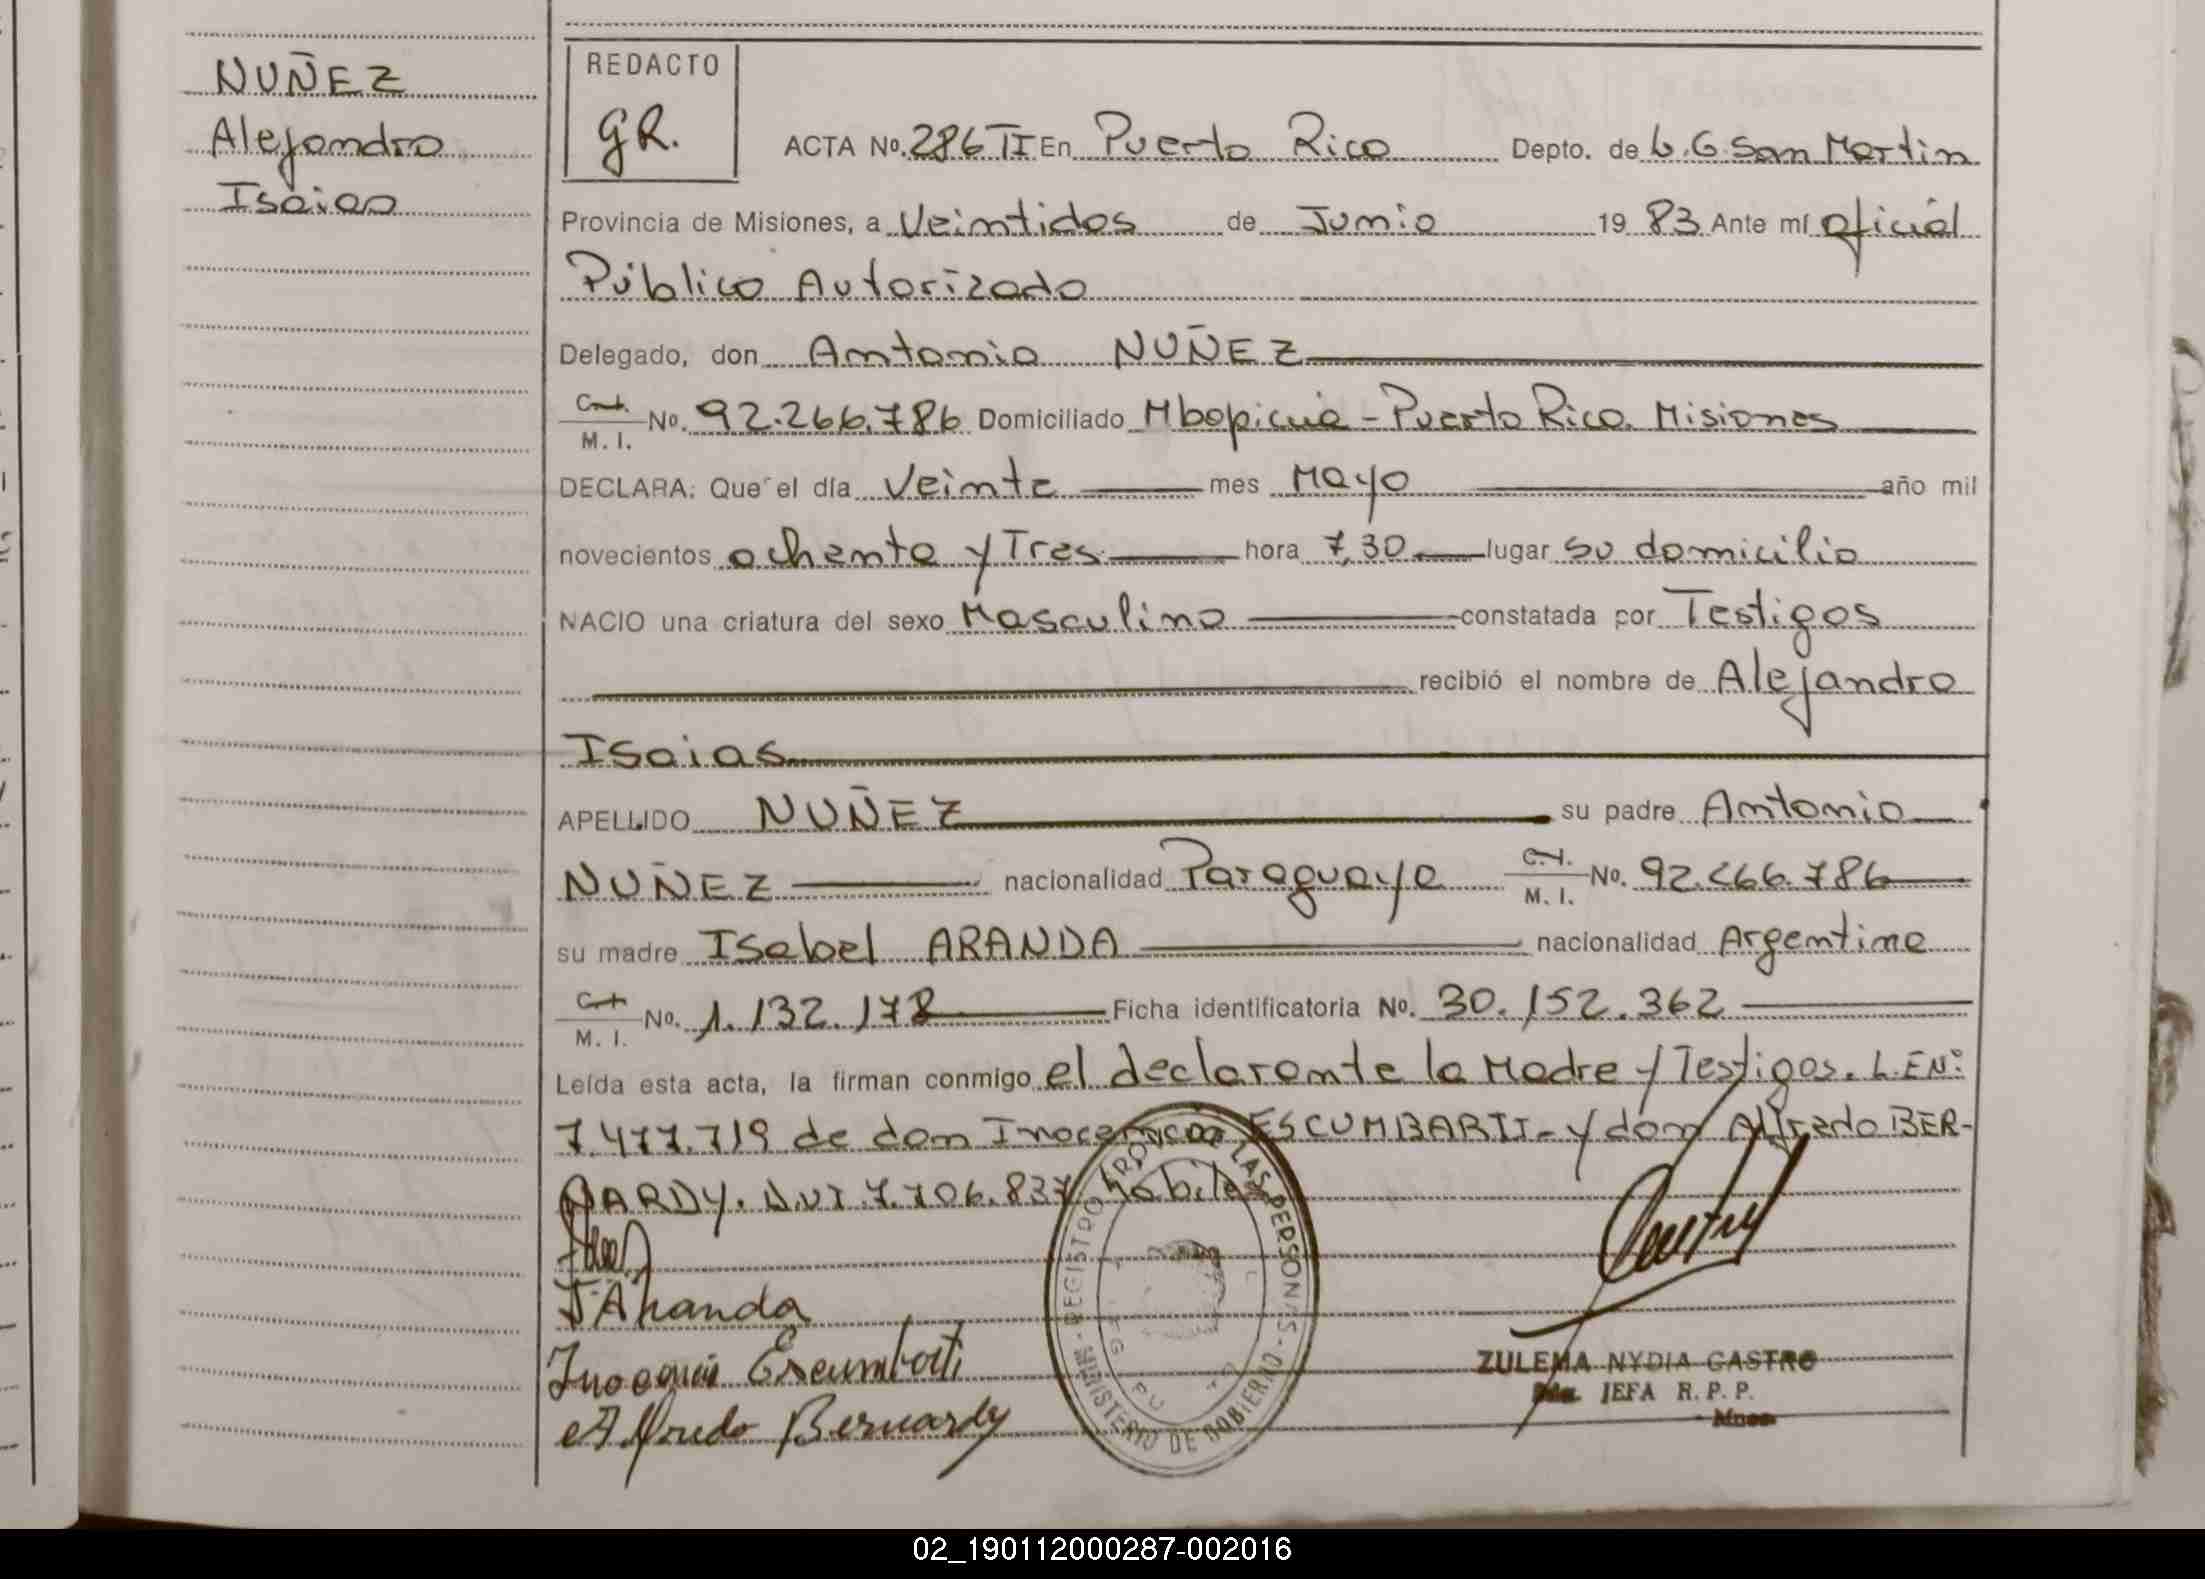 NUÑEZ
Alejandro
Isaias
REDACTO
GR.
ACTA No. 286 TI En Puerto Rico Depto. de L.G. San Martin
Provincia de Misiones, a Veintidos de Junio 19 83 Ante mí oficial
Público Autorizado
Delegado, don Antonio NUÑEZ
M. I. No. 92.266.786 Domiciliado Mbopicuá - Puerto Rico. Misiones
DECLARA: Que el día Veinte mes Mayo año mil
novecientos ochenta y Tres hora 7,30 lugar su domicilio
NACIO una criatura del sexo Masculino constatada por Testigos
recibió el nombre de Alejandro
Isaias
APELLIDO NUÑEZ su padre Antonio
NUÑEZ nacionalidad Paraguaya C.I. M. I. No. 92.266.786
su madre Isabel ARANDA nacionalidad Argentina
M. I. No. 1.132.178 Ficha identificatoria No. 30.152.362
Leída esta acta, la firman conmigo el declarante la Madre y Testigos. L.E Nº:
7.477.719 de don Inocencio ESCUMBARTI - y don Alfredo BER-
NARDY. D.N.I 7.706.837 habiles
I Aranda
Escumbarti
Alfredo Bernardy
REGISTRO PROVINCIAL DE LAS PERSONAS - MINISTERIO DE GOBIERNO -
ZULEMA NYDIA CASTRO
JEFA R. P. P.
Mnes.
02_190112000287-002016